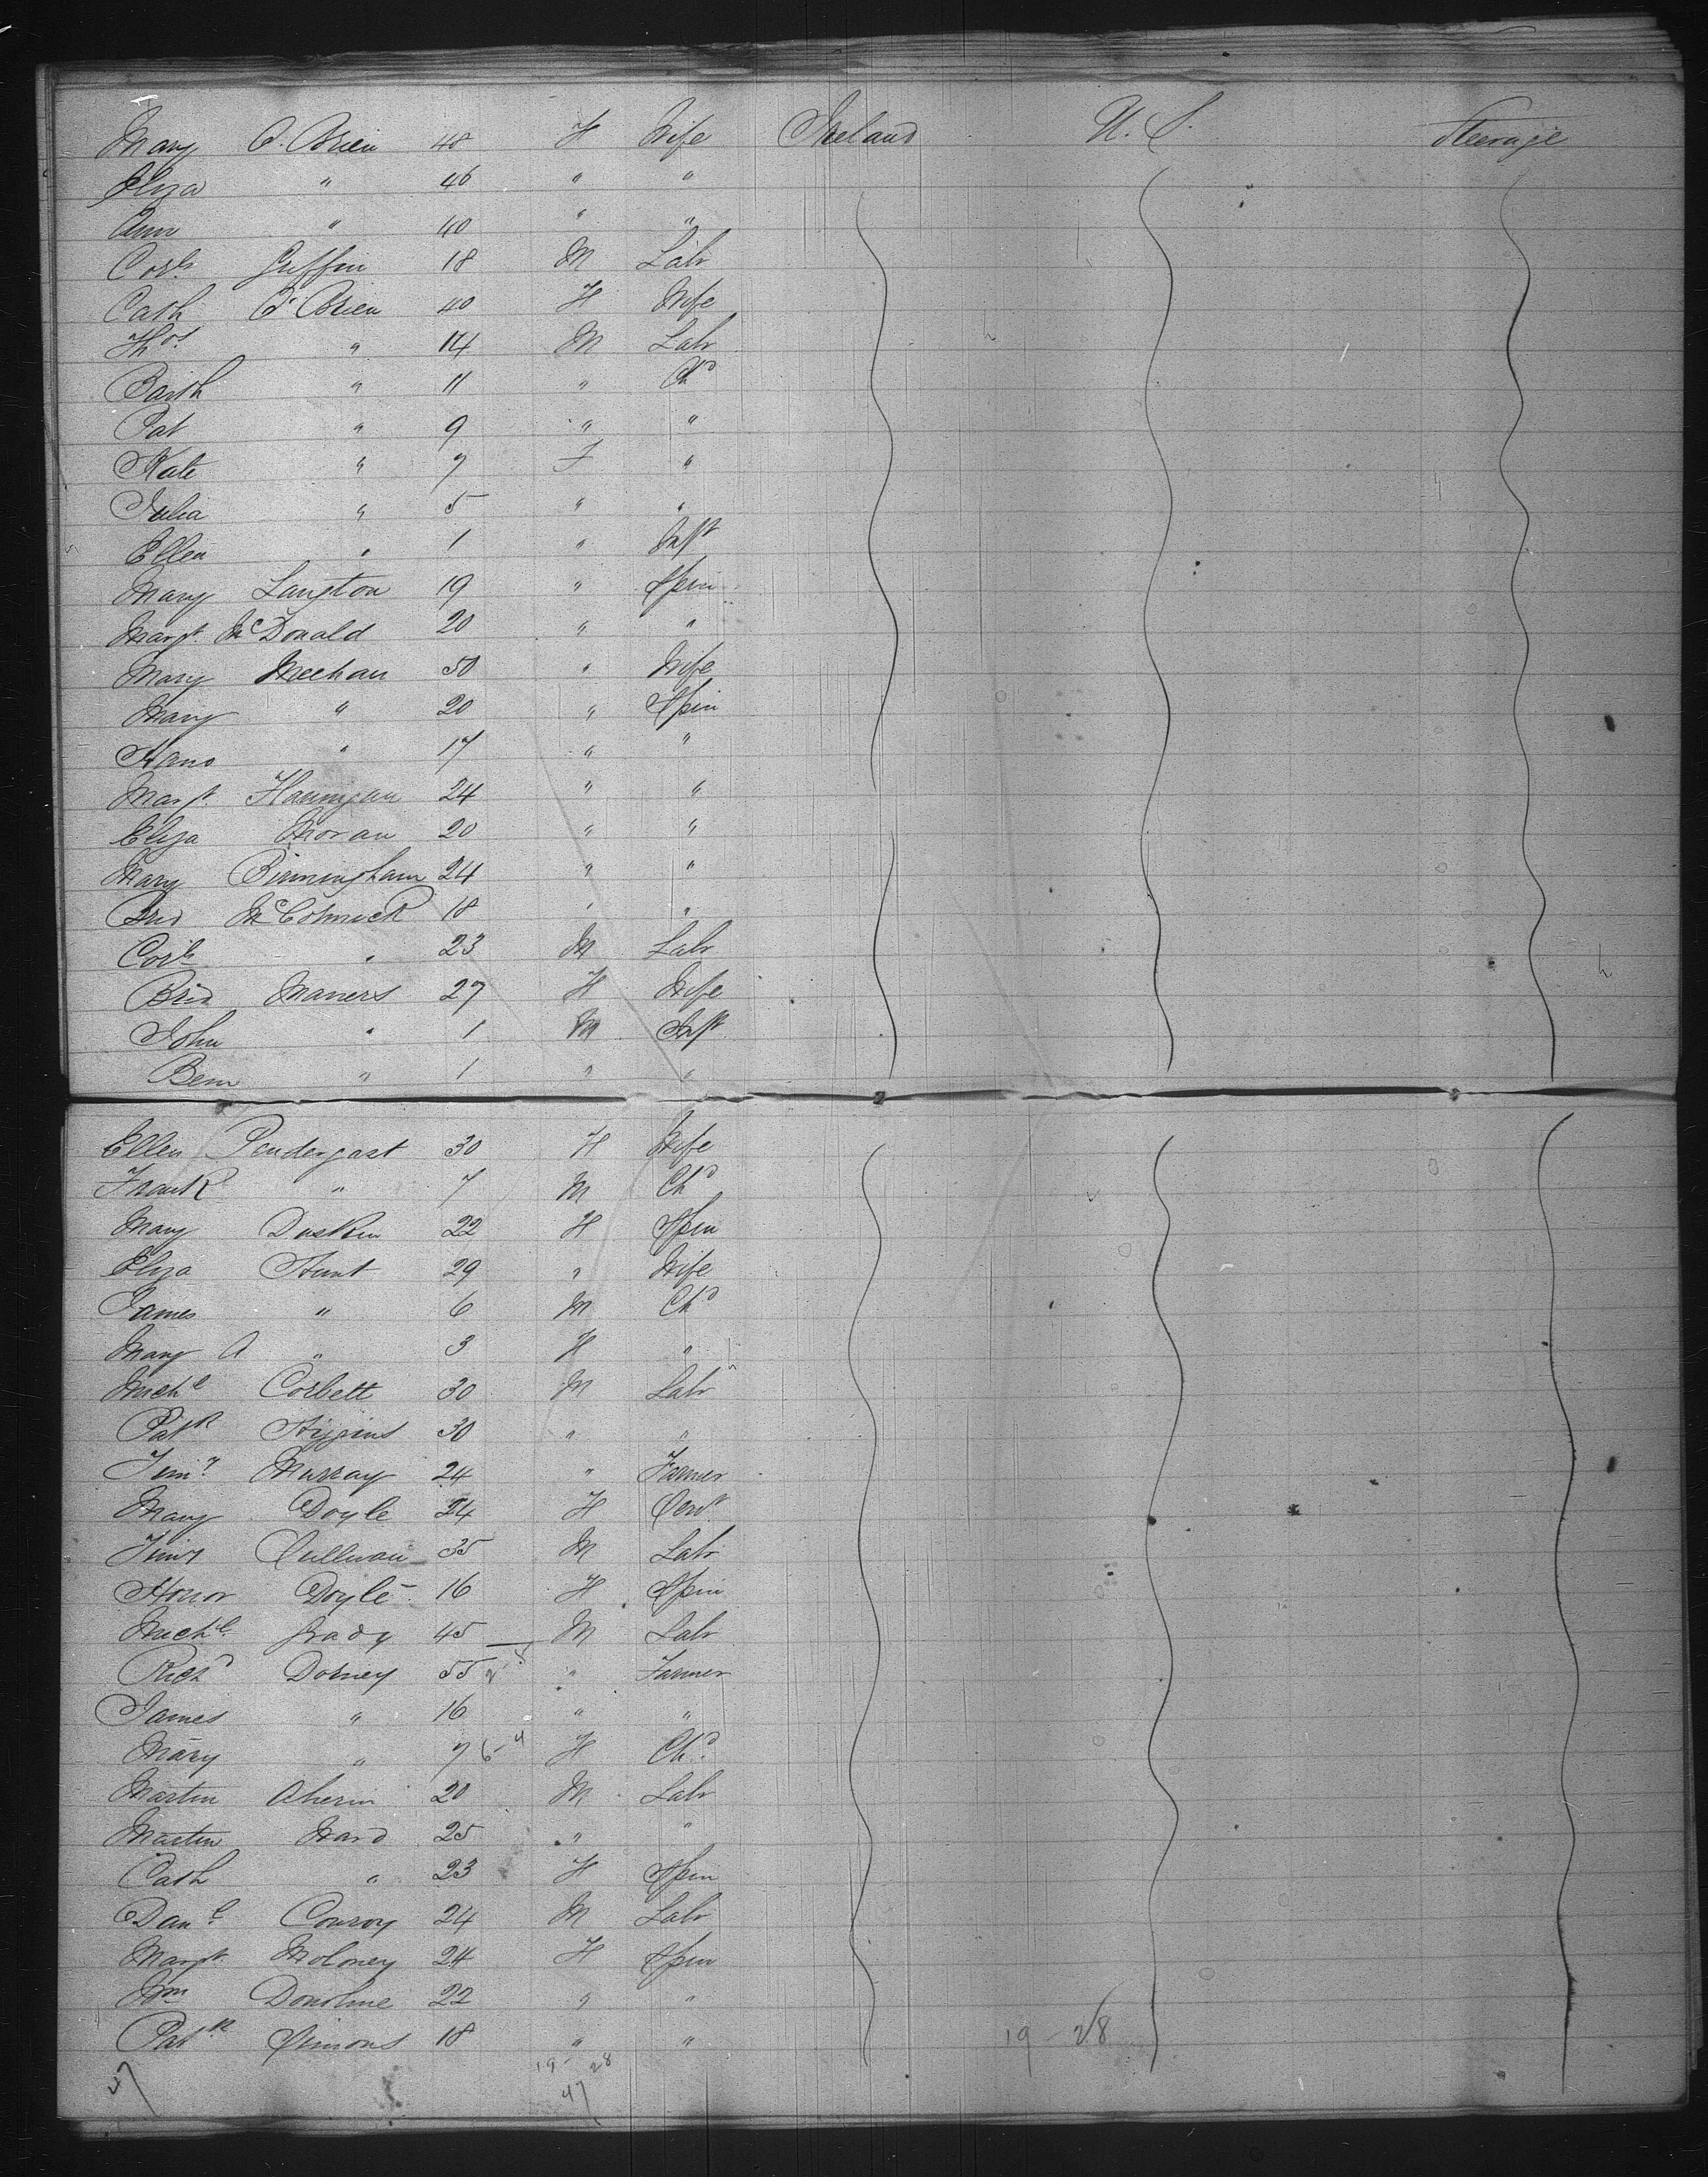 Mary O'Brien 48 F Wife Ireland U.S. Steerage
Eliza " 46 " "
Ann " 40 " "
Corls Griffin 18 M Labr
Cath O'Brien 40 F Wife
Thos " 14 M Labr
Barth " 11 " Chd
Pat " 9 " "
Kate " 7 F "
Julia " 5 " "
Ellen " 1 " Inft
Mary Langton 19 " Spin
Margt McDonald 20 " "
Mary Meehan 50 " Wife
Mary " 20 " Spin
Hano " 17 " "
Margt Hannigan 24 " "
Eliza Moran 20 " "
Mary Birmingham 24 " "
Brid McCormick 18 " "
Corls " 23 M Labr
Brid Maners 27 F Wife
John " 1 M Inft
Bern " 1 " "
Ellen Pendergast 30 F Wife
Frank " 7 M Chd
Mary Duskin 22 F Spin
Eliza Hunt 29 " Wife
James " 6 M Chd
Mary A " 3 F "
Michl Corbett 30 M Labr
Patk Higgins 30 " "
Timy Murray 24 " Farmer
Mary Doyle 24 F Servt
Timy Sullivan 35 M Labr
Honor Doyle 16 F Spin
Michl Grady 45 M Labr
Richd Dorney 55 " Farmer
James " 16 " "
Mary " 7 F Chd
Martin Aherin 20 M Labr
Martin Ward 25 " "
Cath " 23 F Spin
Danl Conroy 24 M Labr
Margt Moloney 24 F Spin
Wm Donohue 22 " "
Patk Simons 18 " "
19 - 28
19 - 28
47
47